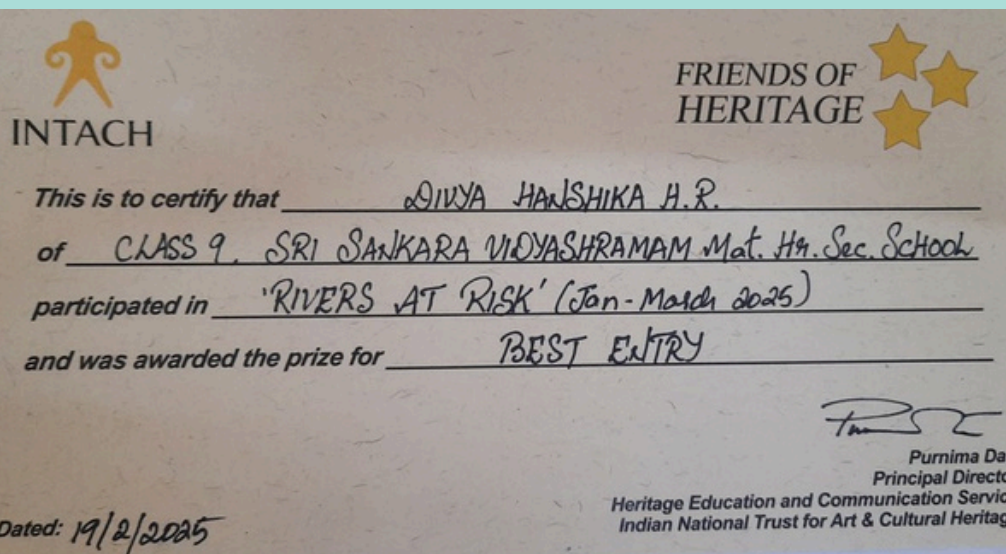 INTACH
FRIENDS OF
HERITAGE
This is to certify that DIVYA HANSHIKA H.R.
of CLASS 9. SRI SANKARA VIDYASHRAMAM Mat. Hr. Sec. SCHOOL
participated in 'RIVERS AT RISK' (Jan - March 2025)
and was awarded the prize for BEST ENTRY
Purnima Da
Principal Directo
Heritage Education and Communication Servic
Indian National Trust for Art & Cultural Heritag
Dated: 19/2/2025